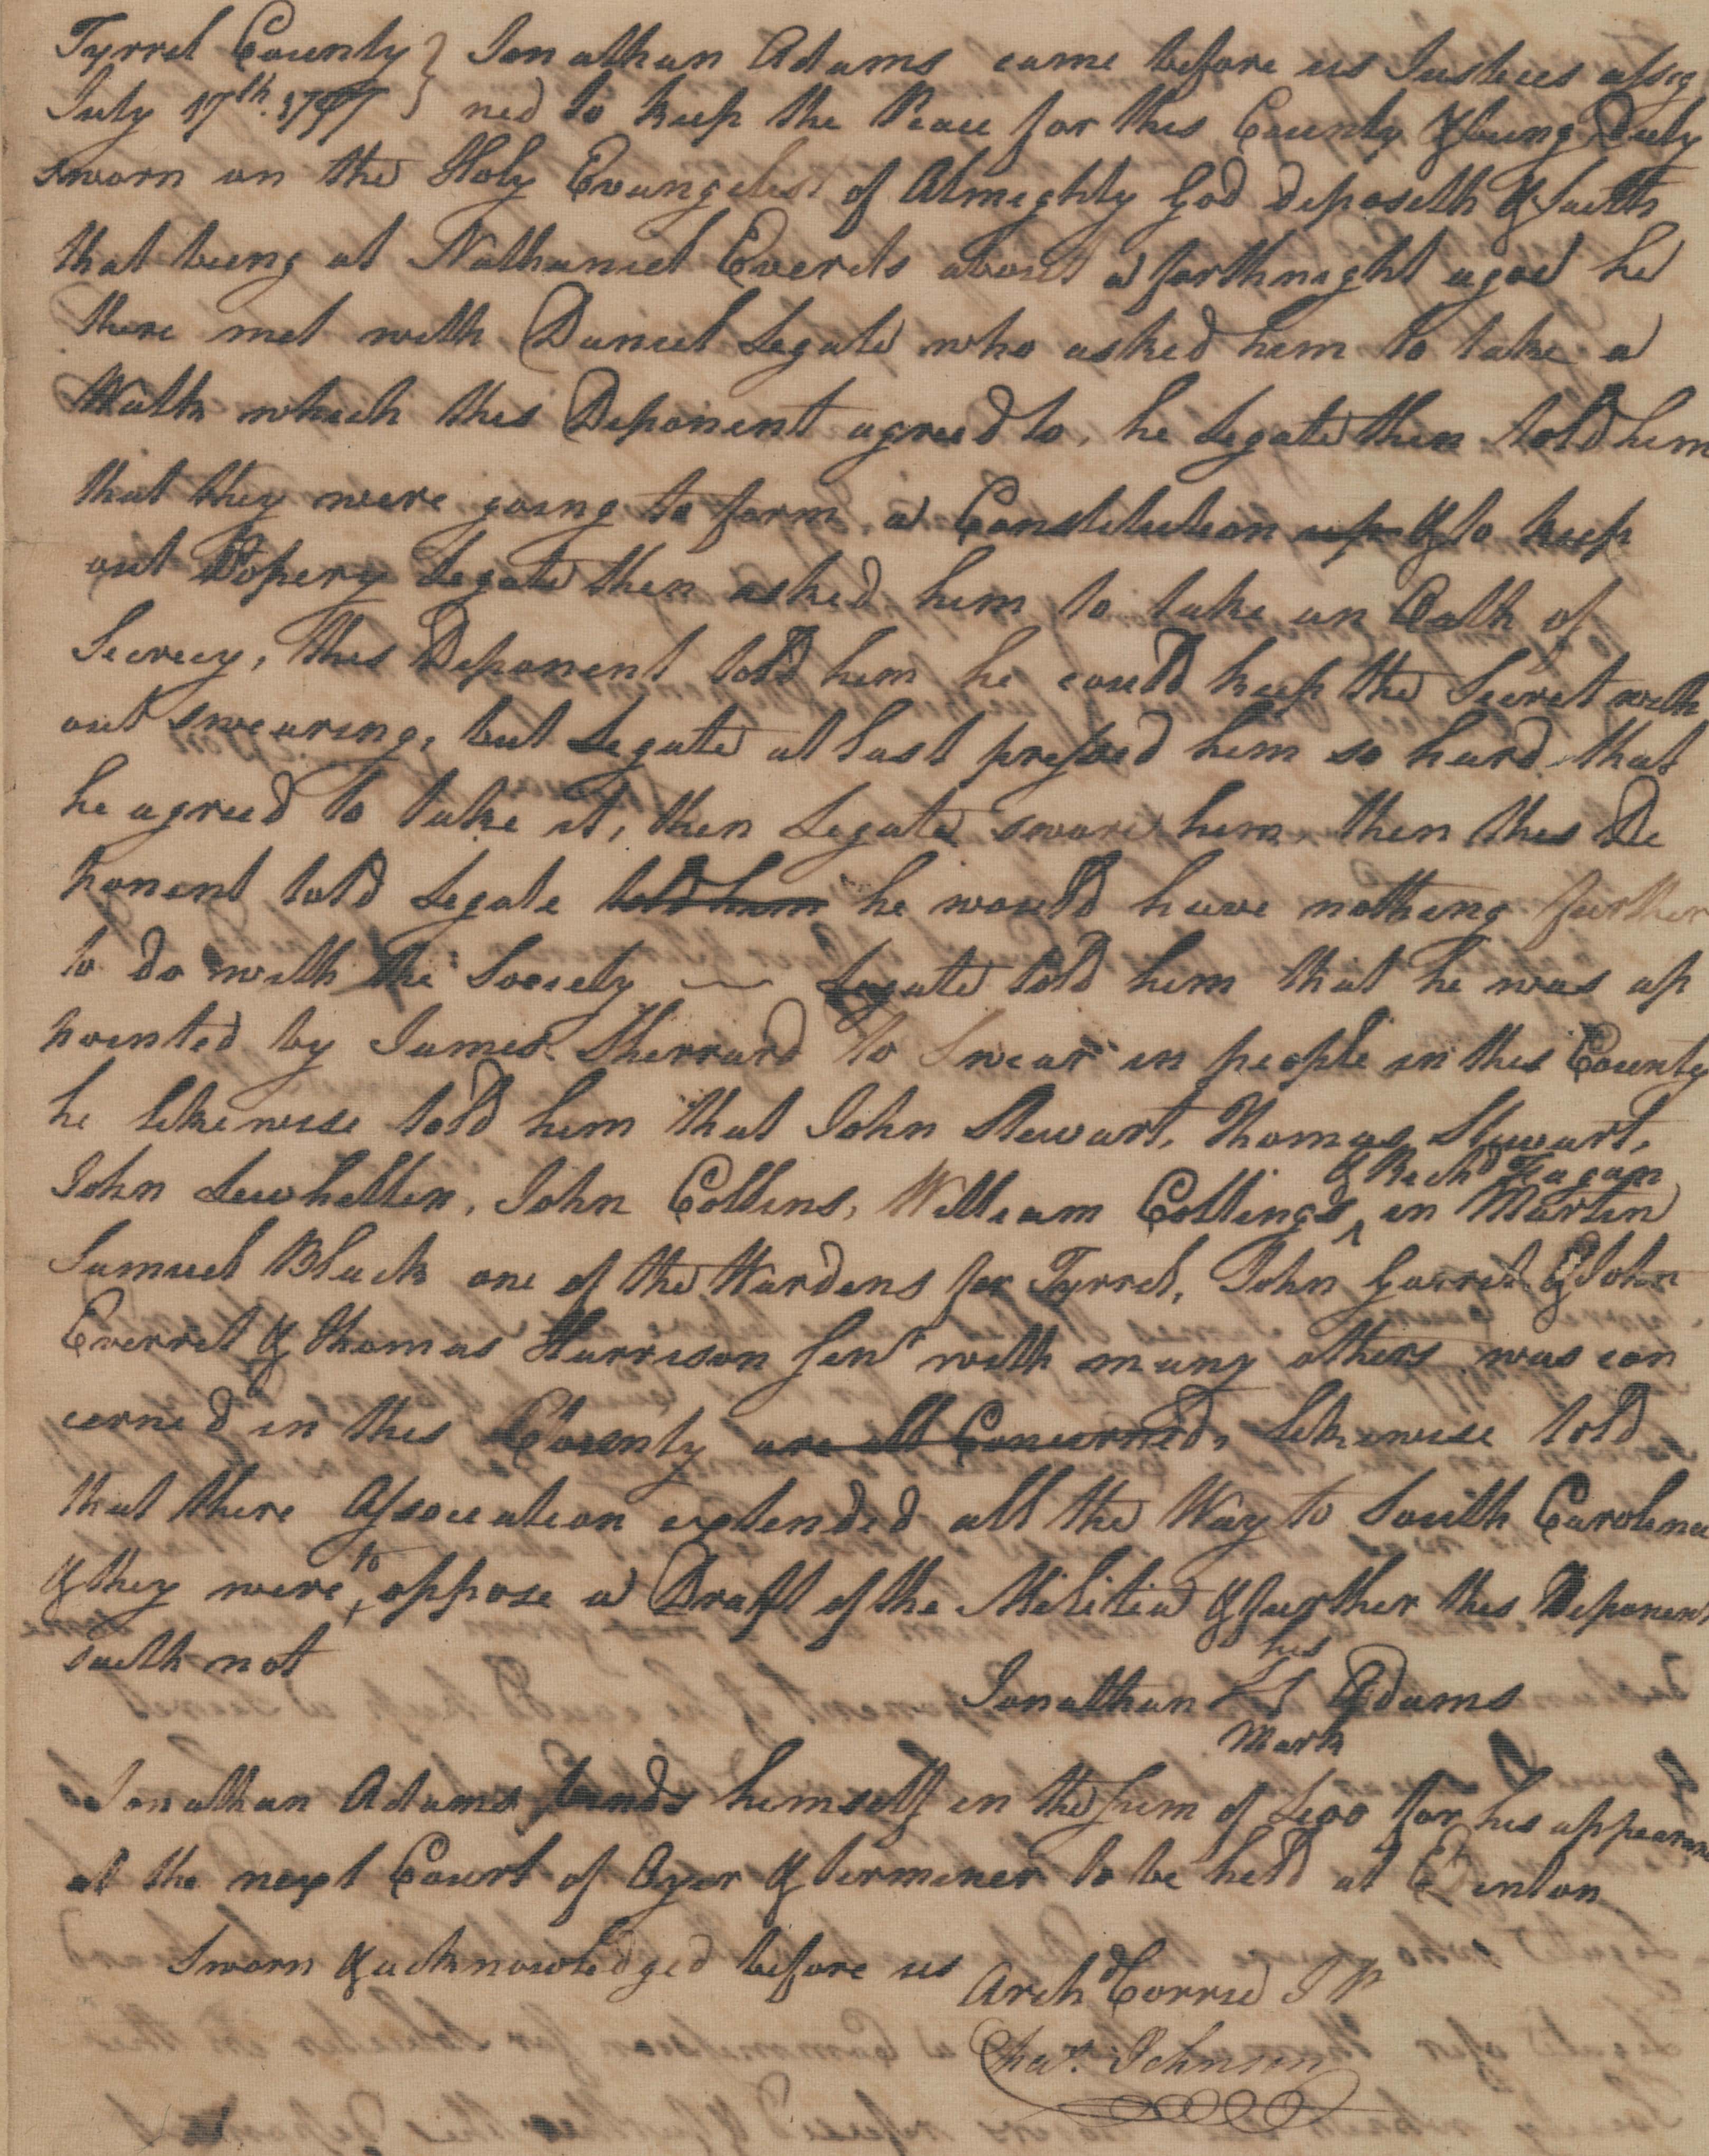 Tyrrel County } Jonathan Adams came before us Justices assig
July 17th. 1777 } ned to keep the Peace for this County & being Duly
sworn on the Holy Evangelest of Almighty God deposeth & saith
that being at Nathaniel Everets about a forthnight agoe he
there met with Daniel Legate who asked him to take a
Walk which this Deponent agreed to, he Legate then told him
that they were going to form a Constitution up & to keep
out Popery Legate then asked him to take an Oath of
Secrecy, this Deponent told him he could keep the Secret with
out swearing, but Legate at last pressed him so hard that
he agreed to take it, then Legate swore him, then this De
ponent told Legate told him he would have nothing further
to do with the Society — Legate told him that he was ap
pointed by James Sherrard to Swear in people in this County
he likewise told him that John Stewart, Thomas Stewart,
& Richd Fagan
John Lewhellin, John Collins, William Collings ^ in Martin
Samuel Black one of the Wardens for Tyrrel, John Garret & John
Everret & Thomas Harrison Senr with many others was con
cerned in this County are all Concerned, likewise told
that there Association extended all the Way to South Carolina
& they were ^to oppose a Draft of the Militia & further this Deponent
saith not
his
Jonathan Adams
Mark
Jonathan Adams binds himself in the Sum of £500 for his appearance
at the next Court of Oyer & terminer to be held at Edenton
Sworn & acknowledged before us Archd Corrie JP
Chas. Johnson